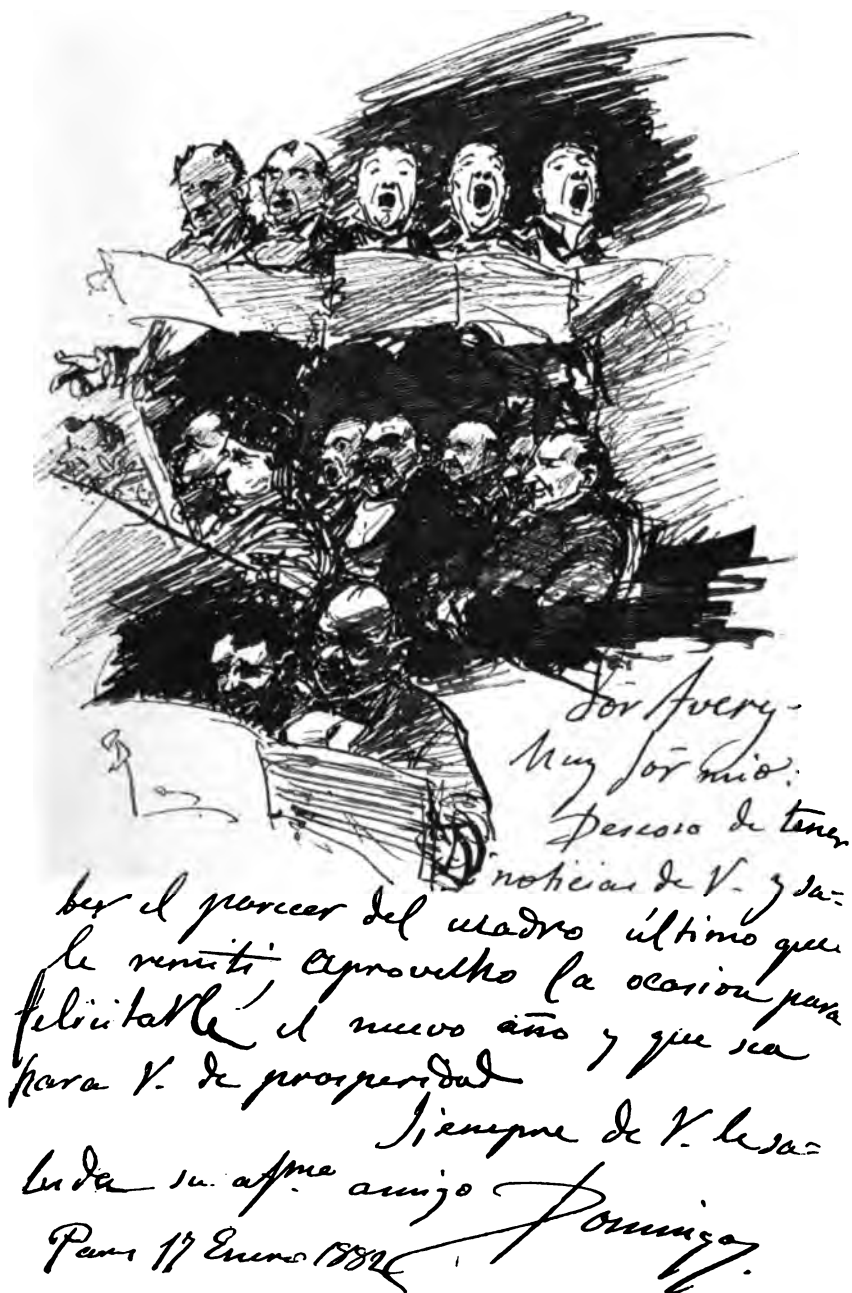 Sör Avery-
Muy Sör mio:
Deseoso de tener
noticias de V. y sa=
ber el parecer del cuadro último que
le remiti, aprovecho la ocasion para
felicitarle el nuevo año y que sea
para V. de prosperidad
Siempre de V. le sa=
luda su afmo amigo
Domingo
Paris 17 Enero 1882